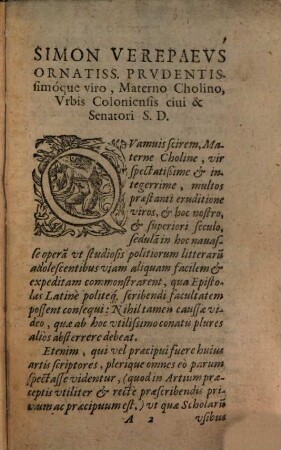 SIMON VEREPAEVS
ORNATISS. PRVDENTIS-
simóque viro, Materno Cholino,
Vrbis Coloniensis ciui &
Senatori S. D.
QVamuis scirem, Ma-
terne Choline, vir
spectatißime & in-
tegerrime, multos
præstanti eruditione
viros, & hoc nostro,
& superiori seculo,
sedulã in hoc nauas-
se operã vt studiosis politiorum litterarũ
adolescentibus viam aliquam facilem &
expeditam commonstrarent, qua Episto-
las Latinè politeq́; scribendi facultatem
possent consequi: Nihil tamen caussæ vi-
deo, quæ ab hoc vtilissimo conatu plures
alios absterrere debeat.
Etenim, qui vel præcipui fuere huius
artis scriptores, plerique omnes eò parum
spectasse videntur, (quod in Artium præ-
ceptis vtiliter & rectè præscribendis pri-
mum ac præcipuum est,) vt quæ Scholariũ
A 2 vsibus